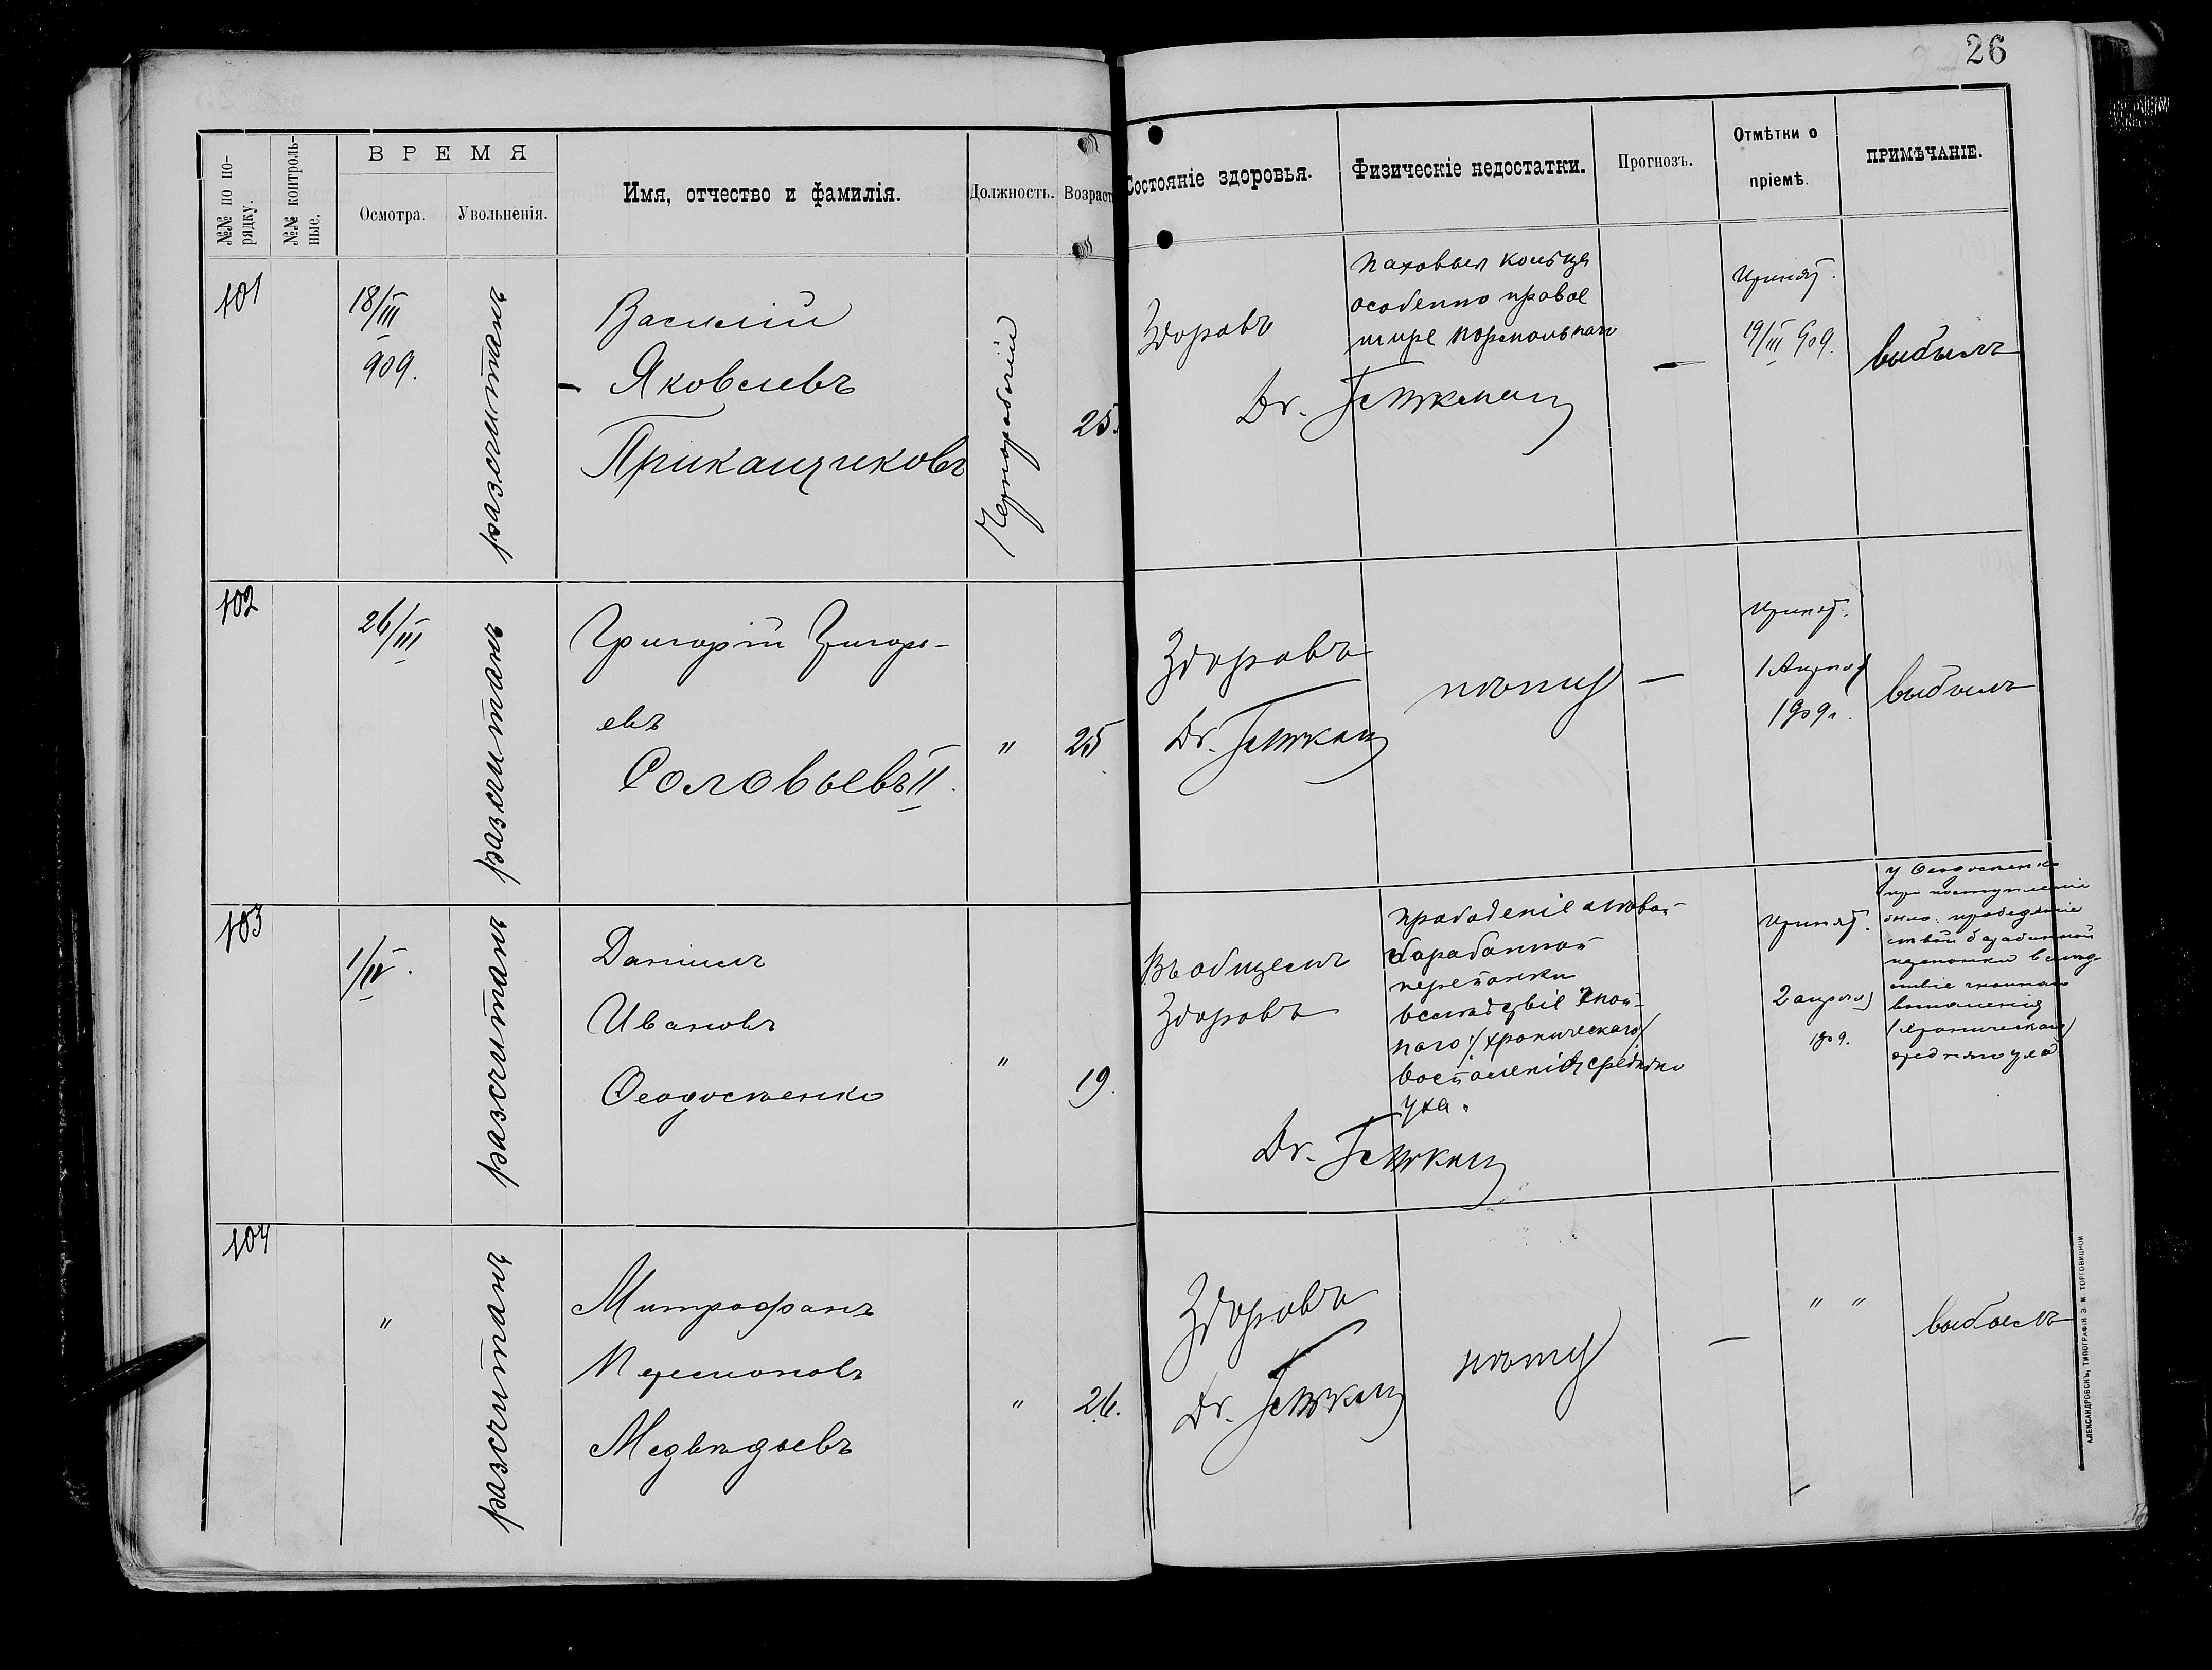 26
№№ по по-
рядку.
№№ контроль-
ные.
ВРЕМЯ
Осмотра.
Увольненія.
Имя, отчество и фамилія.
Должность.
Возраст
Состояніе здоровья.
Физическіе недостатки.
Прогнозъ.
Отмѣтки о
пріемѣ.
ПРИМѢЧАНІЕ.
101
18/III
909.
разсчитанъ
Василій
Яковлевъ
Приканщиковъ
Чернорабочій
25
Здоровъ
паховыя кольца
особенно правое
шире нормальнаго
Dr.
—
Принят.
19/III 909.
выбылъ
102
26/III
разсчитанъ
Григорій Григорь-
евъ
Соловьевъ II.
"
25
Здоровъ
Dr.
нѣту
—
Принят.
1 Апреля
1909г.
выбылъ
103
1/IV.
разсчитанъ
Даніилъ
Ивановъ
"
19.
Въ общемъ
здоровъ
прободеніе лѣвой
барабанной
перепонки
вслѣдствіе гной-
наго /хроническаго/
воспаленія средняго
уха.
Dr.
Принят.
2 апреля
909.
у
при поступленіе
было прободеніе
лѣвой барабанной
перепонки вслѣд-
ствіе гнойнаго
воспаленія
(хроническаго)
средняго уха
104
"
разсчитанъ
Митрофанъ
Медвѣдьевъ
"
26.
Здоровъ
Dr.
нѣту
—
" "
выбылъ
АЛЕКСАНДРОВСКЪ, ТИПОГРАФІЯ Э. М. ТОРГОВИЦКОЙ